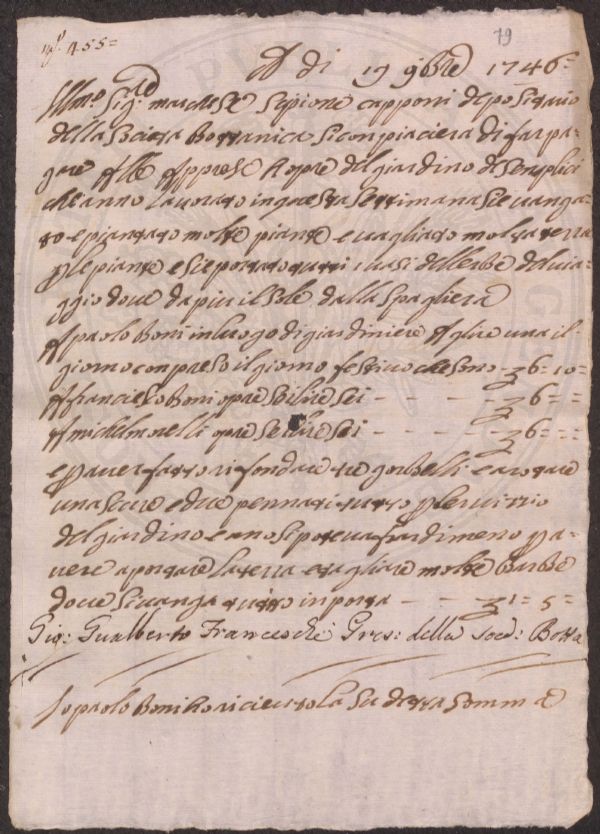 N. 455=
79
A di 19 9bre 1746=
Illmo Sig.re marchese Sepione capponi depositario
della Societa Bottanica si conpiacera di far pa=
gare Alle Apprese hopre del giardino de senplici
che anno lavorato in questa settimana Sie vanga=
to e piantato molte piante e vagliato molta terra
p le piante e sie portato tutti i vasi dell erbe del via=
ggio dove da piu il sole dalla Spagliera
A paolo Boni in luogo di giardiniere A y lire una il
giorno conpreso il giorno festivo che sono - 6=10=
A franciesco Boni opre Sei lire sei - - - - - 6= =
A michel morelli opre sei lire sei - - - - 6= = =
e p aver fatto rifondare tre gorbelli e arotare
una secure e due pennati tutto p lservitio
del giardino e non si poteva far dimeno p a=
vere aportare la terra e tagliare molte barbe
dove si vanga tutto inporta - - - - 1=5=
Gio: Gualberto Franceschi Pres: della Soc: Botta
Io paolo Boni ho riceuto la Su detta Somma